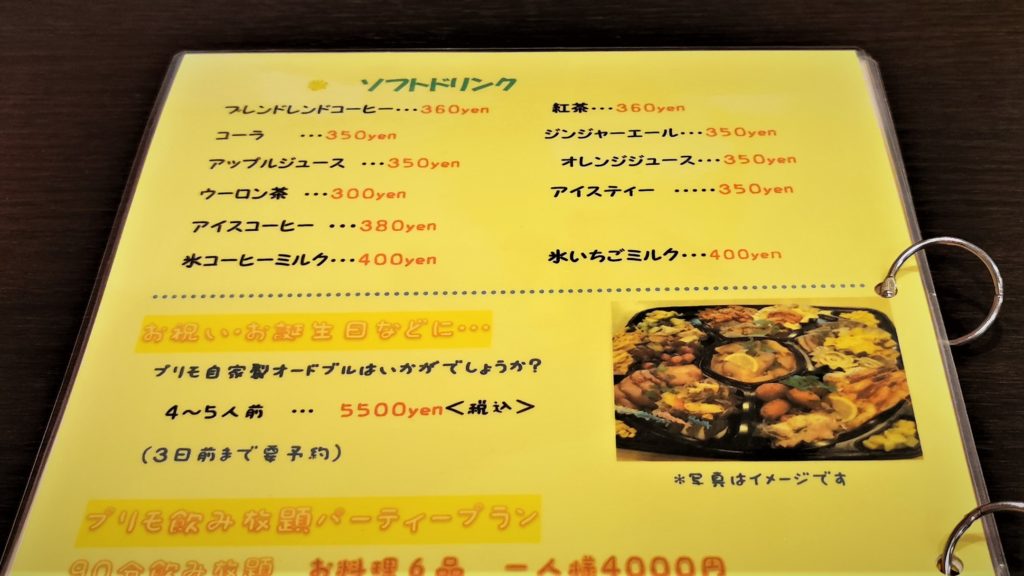 ソフトドリンク
ブレンドレンドコーヒー・・・360yen 紅茶・・・360yen
コーラ ・・・350yen ジンジャーエール・・・350yen
アップルジュース ・・・350yen オレンジジュース・・・350yen
ウーロン茶 ・・・300yen アイスティー ・・・・・350yen
アイスコーヒー ・・・380yen
氷コーヒーミルク・・・400yen 氷いちごミルク・・・400yen
お祝い・お誕生日などに・・・
プリモ自家製オードブルはいかがでしょうか?
4〜5人前 ・・・ 5500yen<税込>
(3日前まで要予約)
*写真はイメージです
プリモ飲み放題パーティープラン
90分飲み放題 お料理6品 一人様4000円